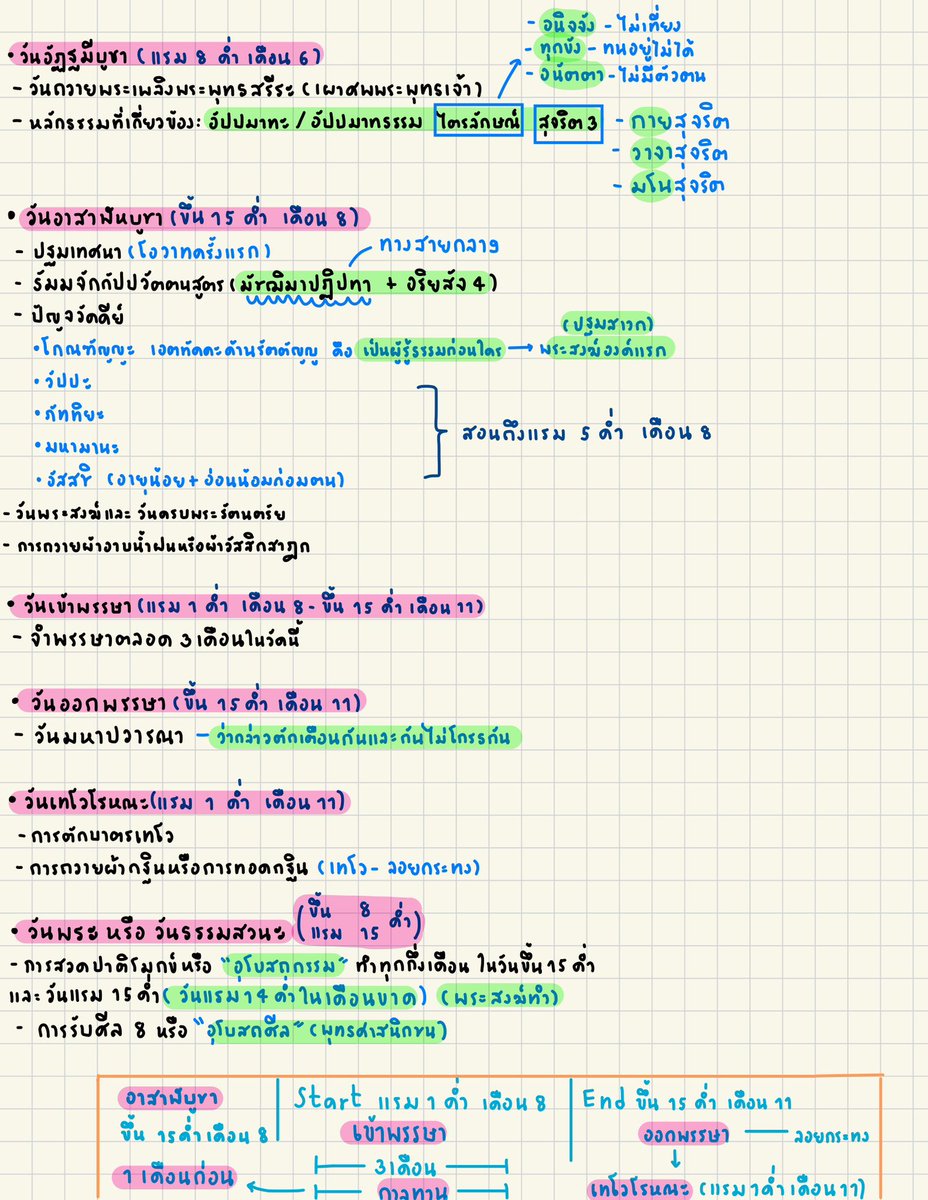 - อนิจจัง - ไม่เที่ยง
- ทุกขัง - ทนอยู่ไม่ได้
- อนัตตา - ไม่มีตัวตน
• วันอัฏฐมีบูชา (แรม 8 ค่ำ เดือน 6)
- วันถวายพระเพลิงพระพุทธสรีระ (เผาศพพระพุทธเจ้า)
- หลักธรรมที่เกี่ยวข้อง: อัปปมาทะ / อัปปมาทธรรม ไตรลักษณ์ สุจริต 3
- กายสุจริต
- วาจาสุจริต
- มโนสุจริต
• วันอาสาฬหบูชา (ขึ้น 15 ค่ำ เดือน 8)
- ปฐมเทศนา (โอวาทครั้งแรก)
ทางสายกลาง
- ธัมมจักกัปปวัตตนสูตร (มัชฌิมาปฏิปทา + อริยสัจ 4)
- ปัญจวัคคีย์
(ปฐมสาวก)
• โกณฑัญญะ เอตทัคคะด้านรัตตัญญู คือ เป็นผู้รู้ธรรมก่อนใคร → พระสงฆ์องค์แรก
• วัปปะ
• ภัททิยะ
• มหานามะ
• อัสสชิ (อายุน้อย + อ่อนน้อมถ่อมตน)
สอนถึงแรม 5 ค่ำ เดือน 8
- วันพระสงฆ์และวันครบพระรัตนตรัย
- การถวายผ้าอาบน้ำฝนหรือผ้าวัสสิกสาฎก
• วันเข้าพรรษา (แรม 1 ค่ำ เดือน 8 - ขึ้น 15 ค่ำ เดือน 11)
- จำพรรษาตลอด 3 เดือนในวัดนี้
• วันออกพรรษา (ขึ้น 15 ค่ำ เดือน 11)
- วันมหาปวารณา - ว่ากล่าวตักเตือนกันและกันไม่โกรธกัน
• วันเทโวโรหณะ (แรม 1 ค่ำ เดือน 11)
- การตักบาตรเทโว
- การถวายผ้ากฐินหรือการทอดกฐิน (เทโว - ลอยกระทง)
• วันพระ หรือ วันธรรมสวนะ (ขึ้น 8 แรม 15 ค่ำ)
- การสวดปาติโมกข์หรือ "อุโบสถกรรม" ทำทุกกึ่งเดือน ในวันขึ้น 15 ค่ำ
และวันแรม 15 ค่ำ (วันแรม 14 ค่ำในเดือนขาด) (พระสงฆ์ทำ)
- การรับศีล 8 หรือ "อุโบสถศีล" (พุทธศาสนิกชน)
อาสาฬบูชา
ขึ้น 15 ค่ำ เดือน 8
1 เดือนก่อน
Start แรม 1 ค่ำ เดือน 8
เข้าพรรษา
3 เดือน
กาลทาน
End ขึ้น 15 ค่ำ เดือน 11
ออกพรรษา — ลอยกระทง
เทโวโรหณะ (แรม 1 ค่ำ เดือน 11)